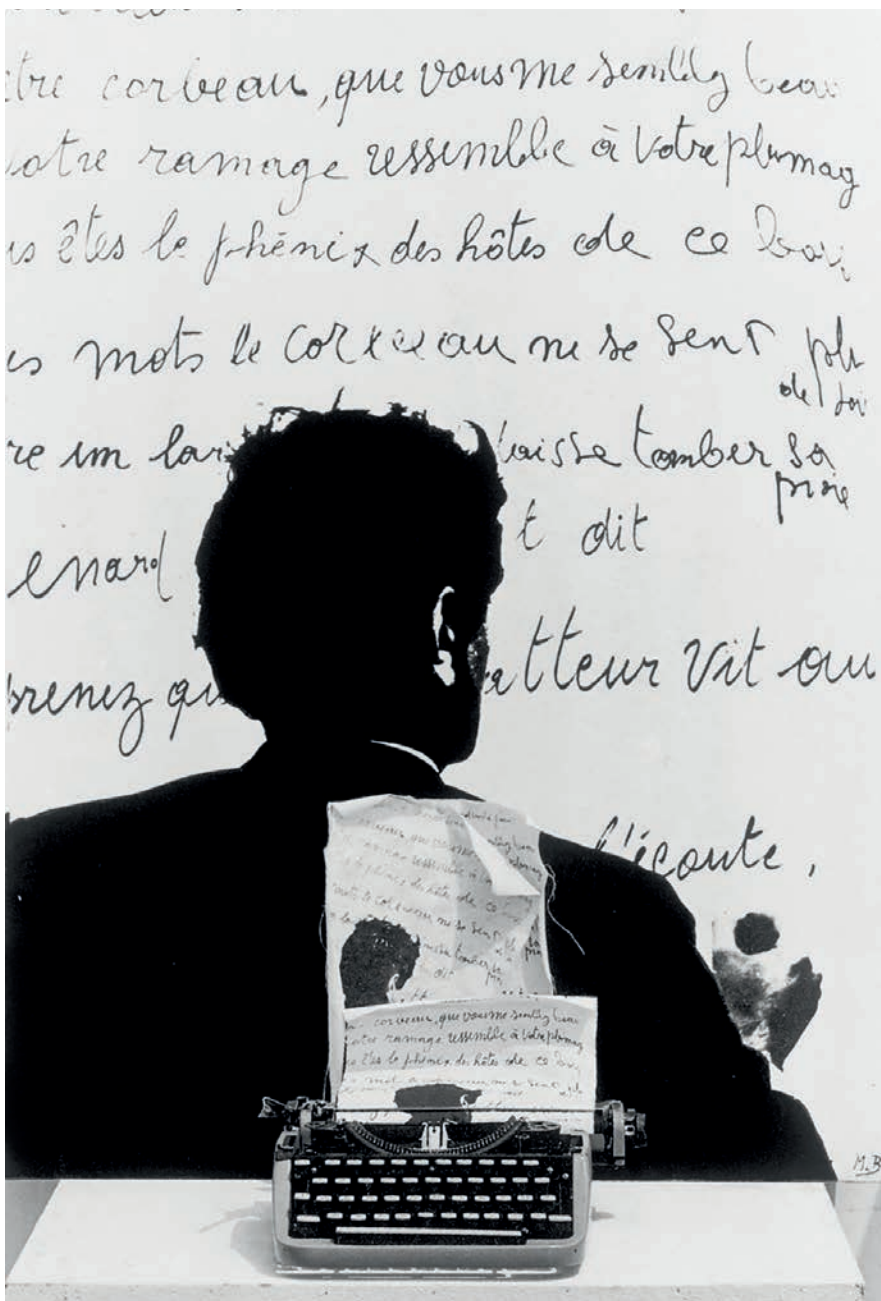 tre corbeau, que vous me semblez beau
otre ramage ressemble à votre plumag
us êtes le phénix des hôtes de ce bois
es mots le corbeau ne se sent plu
de soi
re un lar laisse tomber sa
proie
enard t dit
prenez qu atteur vit au
l'écoute,
corbeau, que vous me semblez beau
otre ramage ressemble à votre plumag
us êtes le phénix des hôtes de ce
M.B